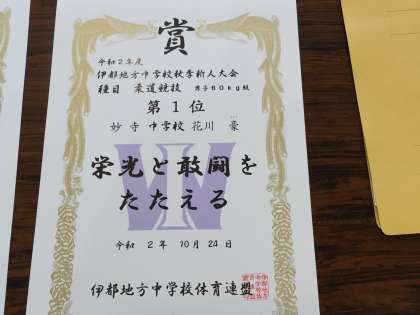 賞
令和2年度
伊都地方中学校秋季新人大会
種目 柔道競技 男子60kg級
第1位
妙寺中学校 花川 豪
栄光と敢闘を
たたえる
令和 2年 10月 24日
伊都地方中学校体育連盟